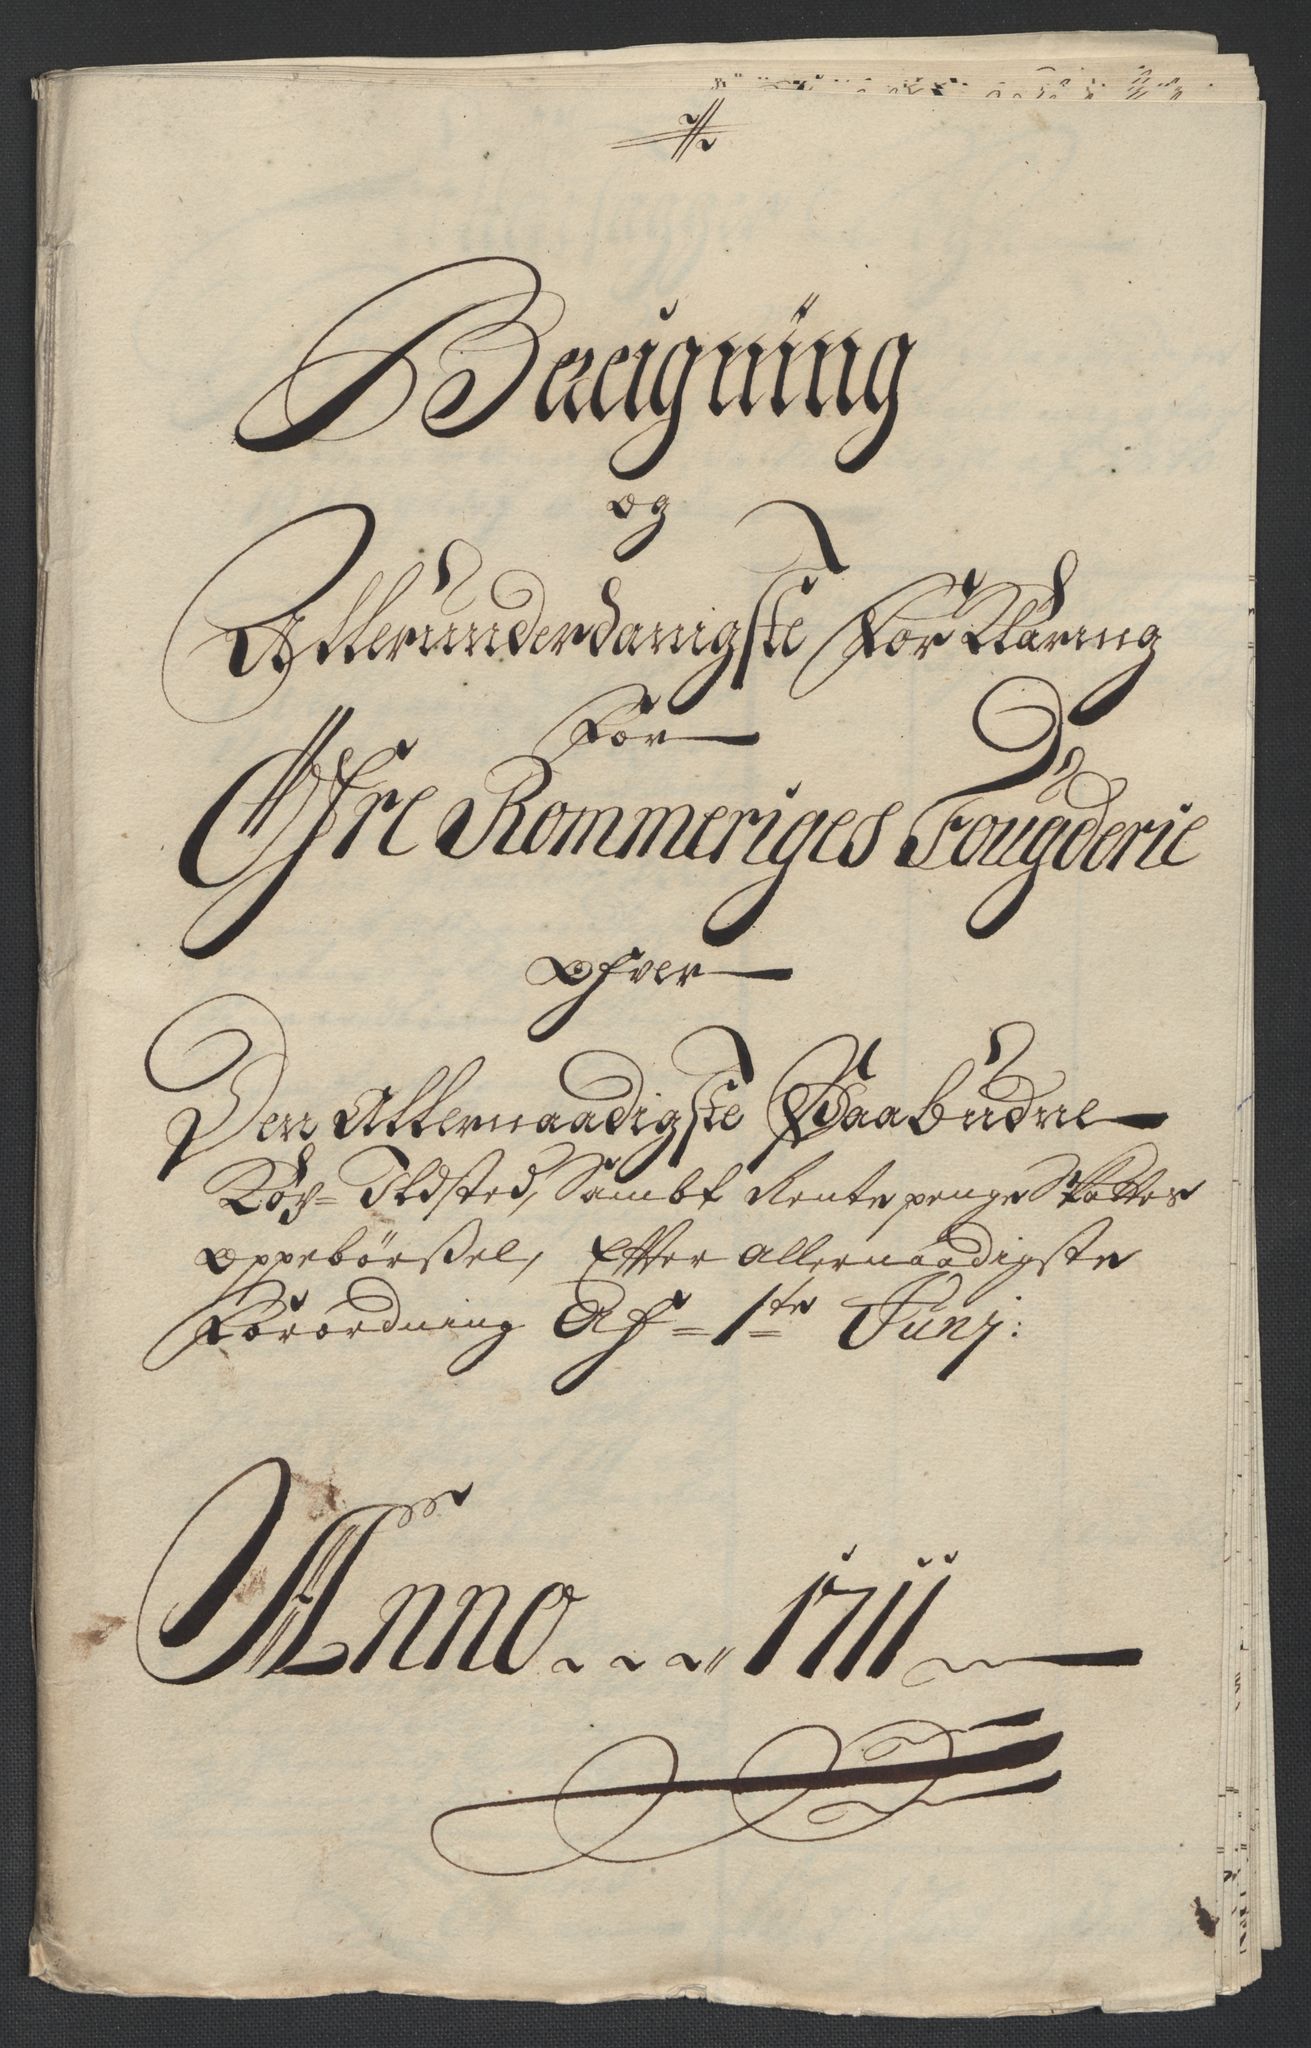 Bereigning
og
Allerunderdanigste Forklaring
For
Øfre Rommeriges Fougderie
Ofver
Den Allernaadigste Paabudne
Røg= Ildsted, Sambt Rentepenge Skatters
oppebørßel, Efter allernaadigste
Forordning Af = 1te Junj:
Anno 1711